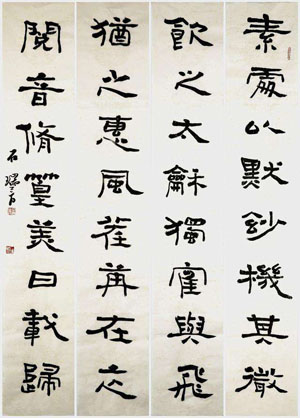 素處以默玅機其微
飲之太龢獨寉與飛
猶之惠風荏苒在衣
閱音脩篁美曰載歸